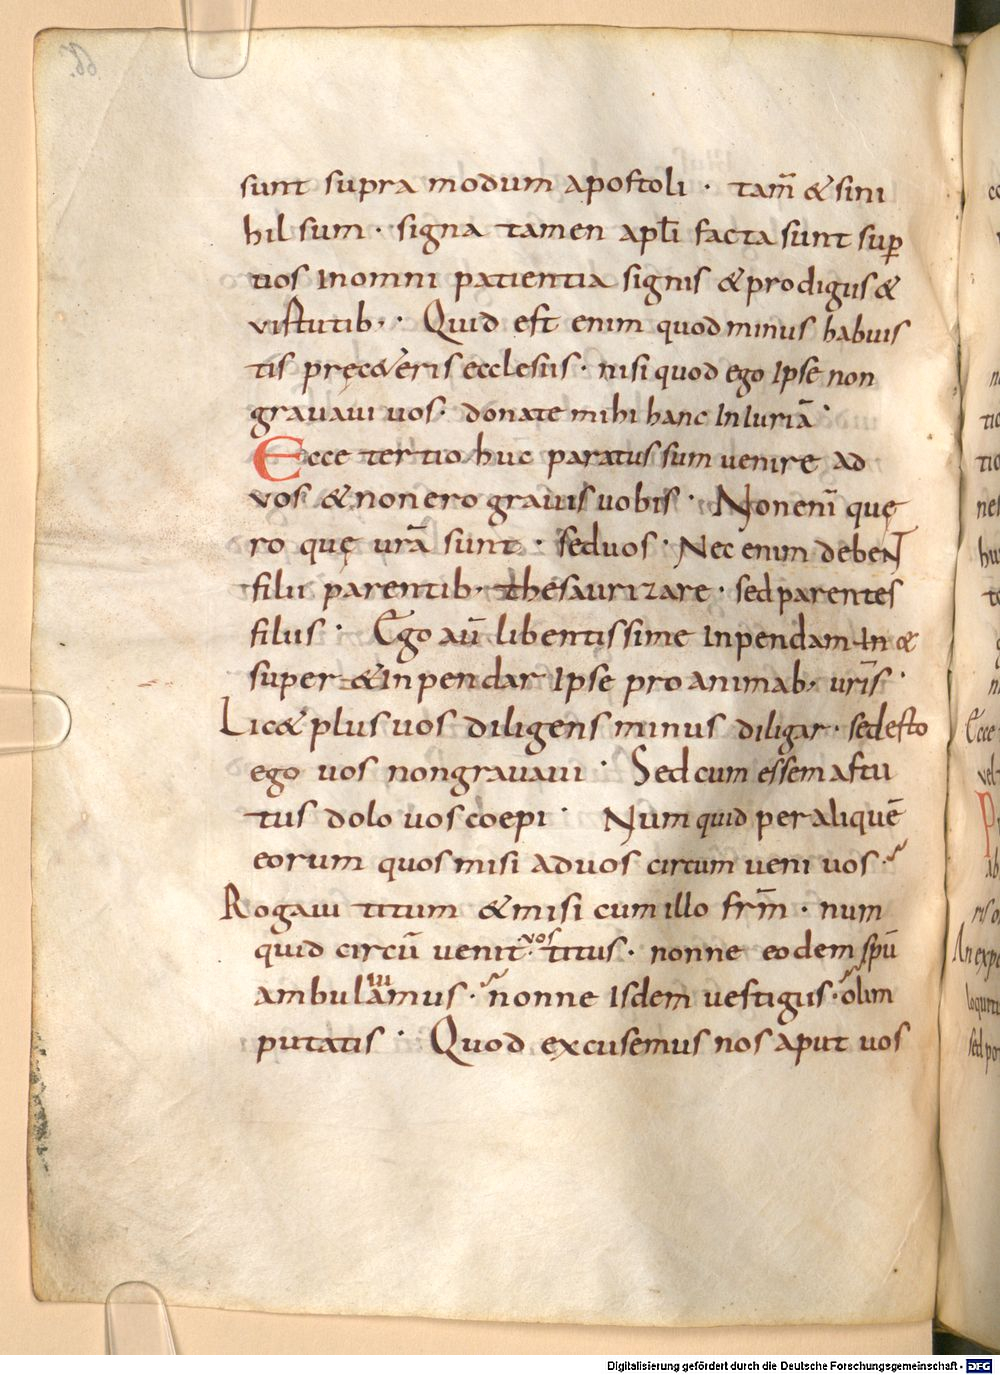 sunt supra modum apostoli · tam̅ & si ni
hil sum · signa tamen apl̅i facta sunt sup̱
uos In omni patientia signis & prodigiis &
virtutib; · Quid est enim quod minus habuis
tis pręc&eris ecclesiis · nisi quod ego Ipse non
grauaui uos · donate mihi hanc InIuriā ·
Ecce tertio huc paratus sum uenire ad
vos & non ero grauis uobis · Non eni̅ quę
ro quę ur̅a sunt · sed uos · Nec enim debent
filii parentib; thesaurizare · sed parentes
filiis · Ego au̅ libentissime Inpendam In &
super & Inpendar Ipse pro animab; ur̅is ·
Lic& plus uos diligens minus diligar · sed esto
ego uos non grauaui · Sed cum essem astu
tus dolo uos coepi · Num quid per aliquē
eorum quos misi ad uos circum ueni uos ·
Rogaui titum & misi cum illo fr̅m · num
quid circū uenit · uos titus · nonne eodem sp̅u
ambulamus · nonne Isdem uestigiis · olim
putatis · Quod excusemus nos aput uos
Digitalisierung gefördert durch die Deutsche Forschungsgemeinschaft - DFG